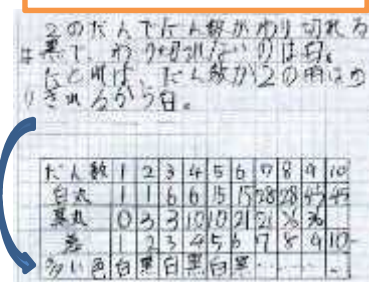 2のだん でだん数がわり切れる
黒で、わり切れないのは白。
だん数が2の
きれるから白。
だん数 1 2 3 4 5 6 7 8 9 10
白丸 1 1 6 6 15 15 28 28 45 45
黒丸 0 3 3 10 10 21 21 36 36
差 1 2 3 4 5 6 7 8 9 10
多い色 白 黒 白 黒 白 黒